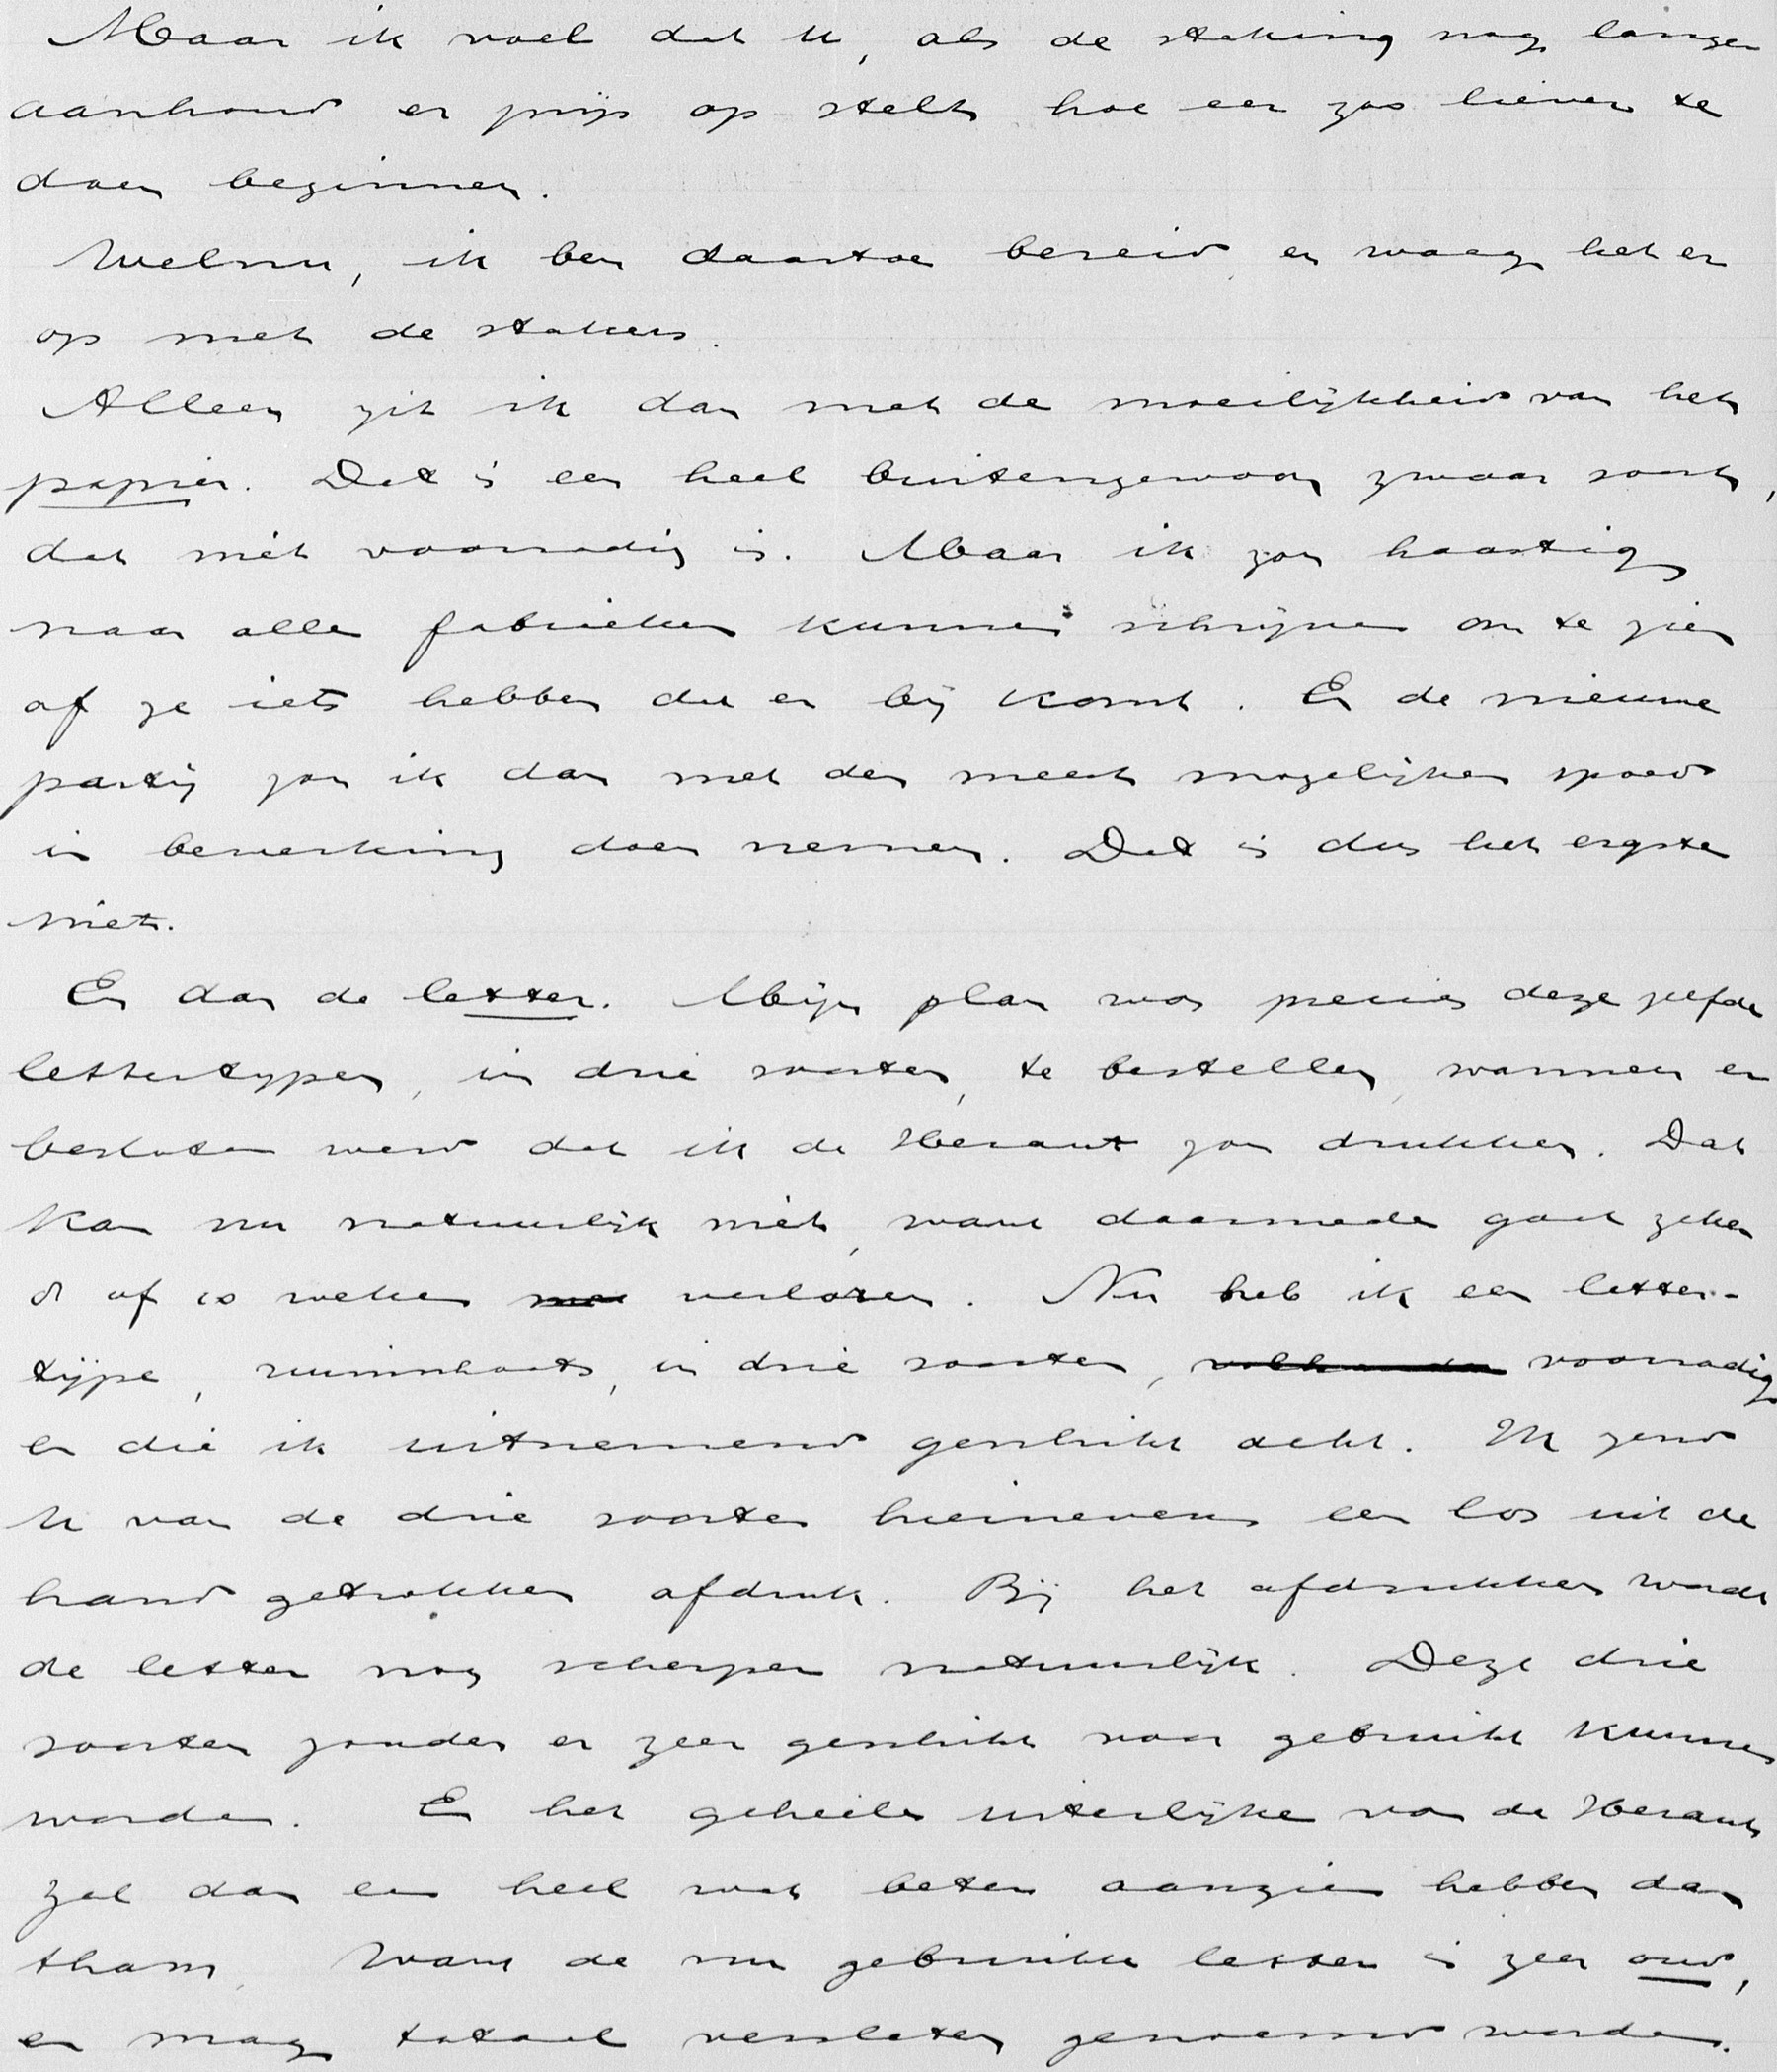 Maar ik voel dat U, als de staking nog langer
aanhoud er prijs op stelt hoe eer zoo liever te
doen beginnen.
Welnu, ik ben daartoe bereid en waag het er
op met de stakers.
Alleen zit ik dan met de moeilijkheid van het
papier. Dat is een heel buitengewoon zwaar soort,
dat niet voorradig is. Maar ik zou haastig
naar alle fabrieken kunnen schrijven om te zien
of ze iets hebben dat er bij komt. En de nieuwe
partij zou ik dan met den meest mogelijken spoed
in bewerking doen nemen. Dat is dus het ergste
niet.
En dan de letter. Mijn plan was precies deze zelfde
lettertypen, in drie soorten, te bestellen, wanneer er
besloten werd dat ik de Heraut zou drukken. Dat
kan nu natuurlijk niet, want daarmede gaat zeker
8 of 10 weken verloren. Nu heb ik een letter-
type, ruimschoots, in drie soorten, voorradig
en die ik uitnemend geschikt acht. Ik zend
U van de drie soorten hiernevens een los uit de
hand getrokken afdruk. Bij het afdrukken wordt
de letter nog scherper natuurlijk. Deze drie
soorten zouden er zeer geschikt voor gebruikt kunnen
worden. En het geheele uiterlijke van de Heraut
zal dan een heel wat beter aanzien hebben dan
thans. Want de nu gebruikte letter is zeer oud,
en mag totaal versleten genoemd worden.